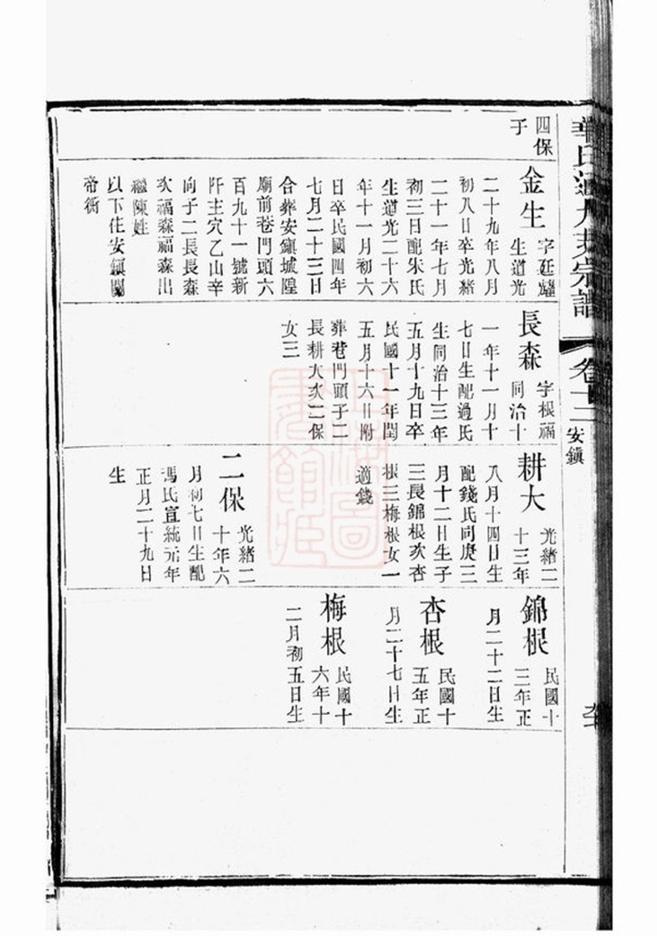 華氏通九支宗譜
卷十三
安鎮
四保
子
金生
字廷耀
生道光
二十九年八月
初八日卒光緒
二十一年七月
初三日配朱氏
生道光二十六
年十一月初六
日卒民國四年
七月二十三日
合葬安鎮城隍
廟前巷門頭六
百九十一號新
阡主穴乙山辛
向子二長長森
次福森福森出
繼陳姓
以下住安鎮關
帝衖
長森
字根福
同治十
一年十一月十
七日生配過氏
生同治十三年
五月十九日卒
民國十一年閏
五月十六日附
葬巷門頭子二
長耕大次二保
女三
耕大
光緒二
十三年
八月十四日生
配錢氏同庚三
月十二日生子
三長錦根次杏
根三梅根女一
適錢
二保
光緒二
十年六
月初七日生配
馮氏宣統元年
正月二十九日
生
錦根
民國十
三年正
月二十二日生
杏根
民國十
五年正
月二十七日生
梅根
民國十
六年十
二月初五日生